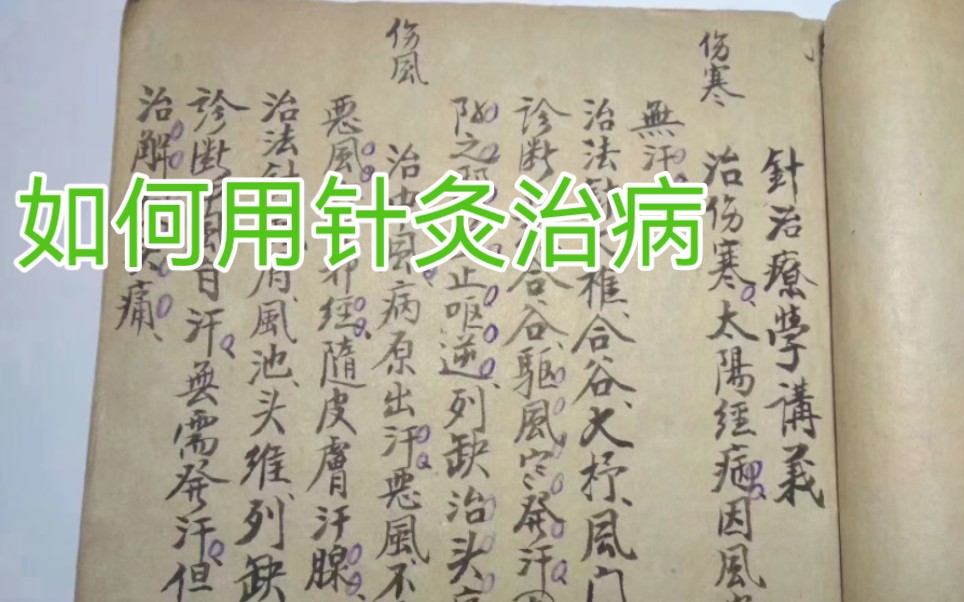 如何用针灸治病
針治療學講義
伤寒
治伤寒、太陽經病因風
無汗
治法 椎、合谷、大杼、風门
診断 合谷、驱風寒発汗
之 止呕逆、列缺治头
伤風
治 風病原出汗惡風不
惡風 經、隨皮膚汗腺
治法針 府、風池、头维、列缺
診断 自汗、無需発汗、但
治解 痛、